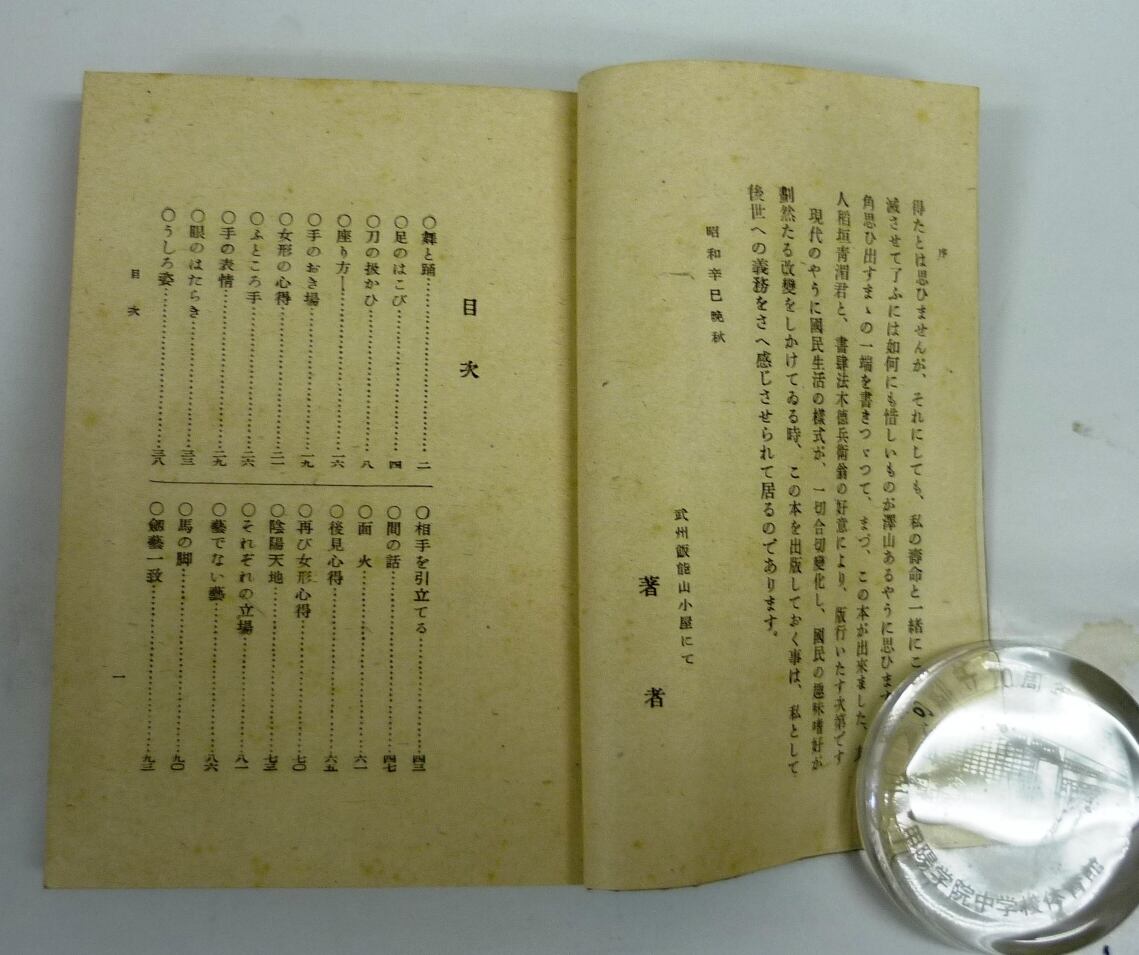 序
得たとは思ひませんが、それにしても、私の壽命と一緖にこ
滅させて了ふには如何にも惜しいものが澤山あるやうに思ひます
角思ひ出すまゝの一端を書きつゞつて、まづ、この本が出來ました、
人稻垣靑湄君と、書肆法木德兵衞翁の好意により、版行いたす次第です
現代のやうに國民生活の樣式が、一切合切變化し、國民の趣味嗜好が
劃然たる改變をしかけてゐる時、この本を出版しておく事は、私として
後世への義務をさへ感じさせられて居るのであります。
昭和辛巳晚秋
武州飯能山小屋にて
著者
目次
○舞と踊……二
○足のはこび……四
○刀の扱かひ……八
○座り方……一六
○手のおき場……一九
○女形の心得……二一
○ふところ手……二六
○手の表情……二九
○眼のはたらき……三三
○うしろ姿……三八
○相手を引立てる……四三
○間の話……四七
○面火……六一
○後見心得……六五
○再び女形心得……七〇
○陰陽天地……七三
○それぞれの立場……八一
○藝でない藝……八六
○馬の脚……九〇
○劔藝一致……九三
目次
一
70周年
甲陽学院中学校体育館